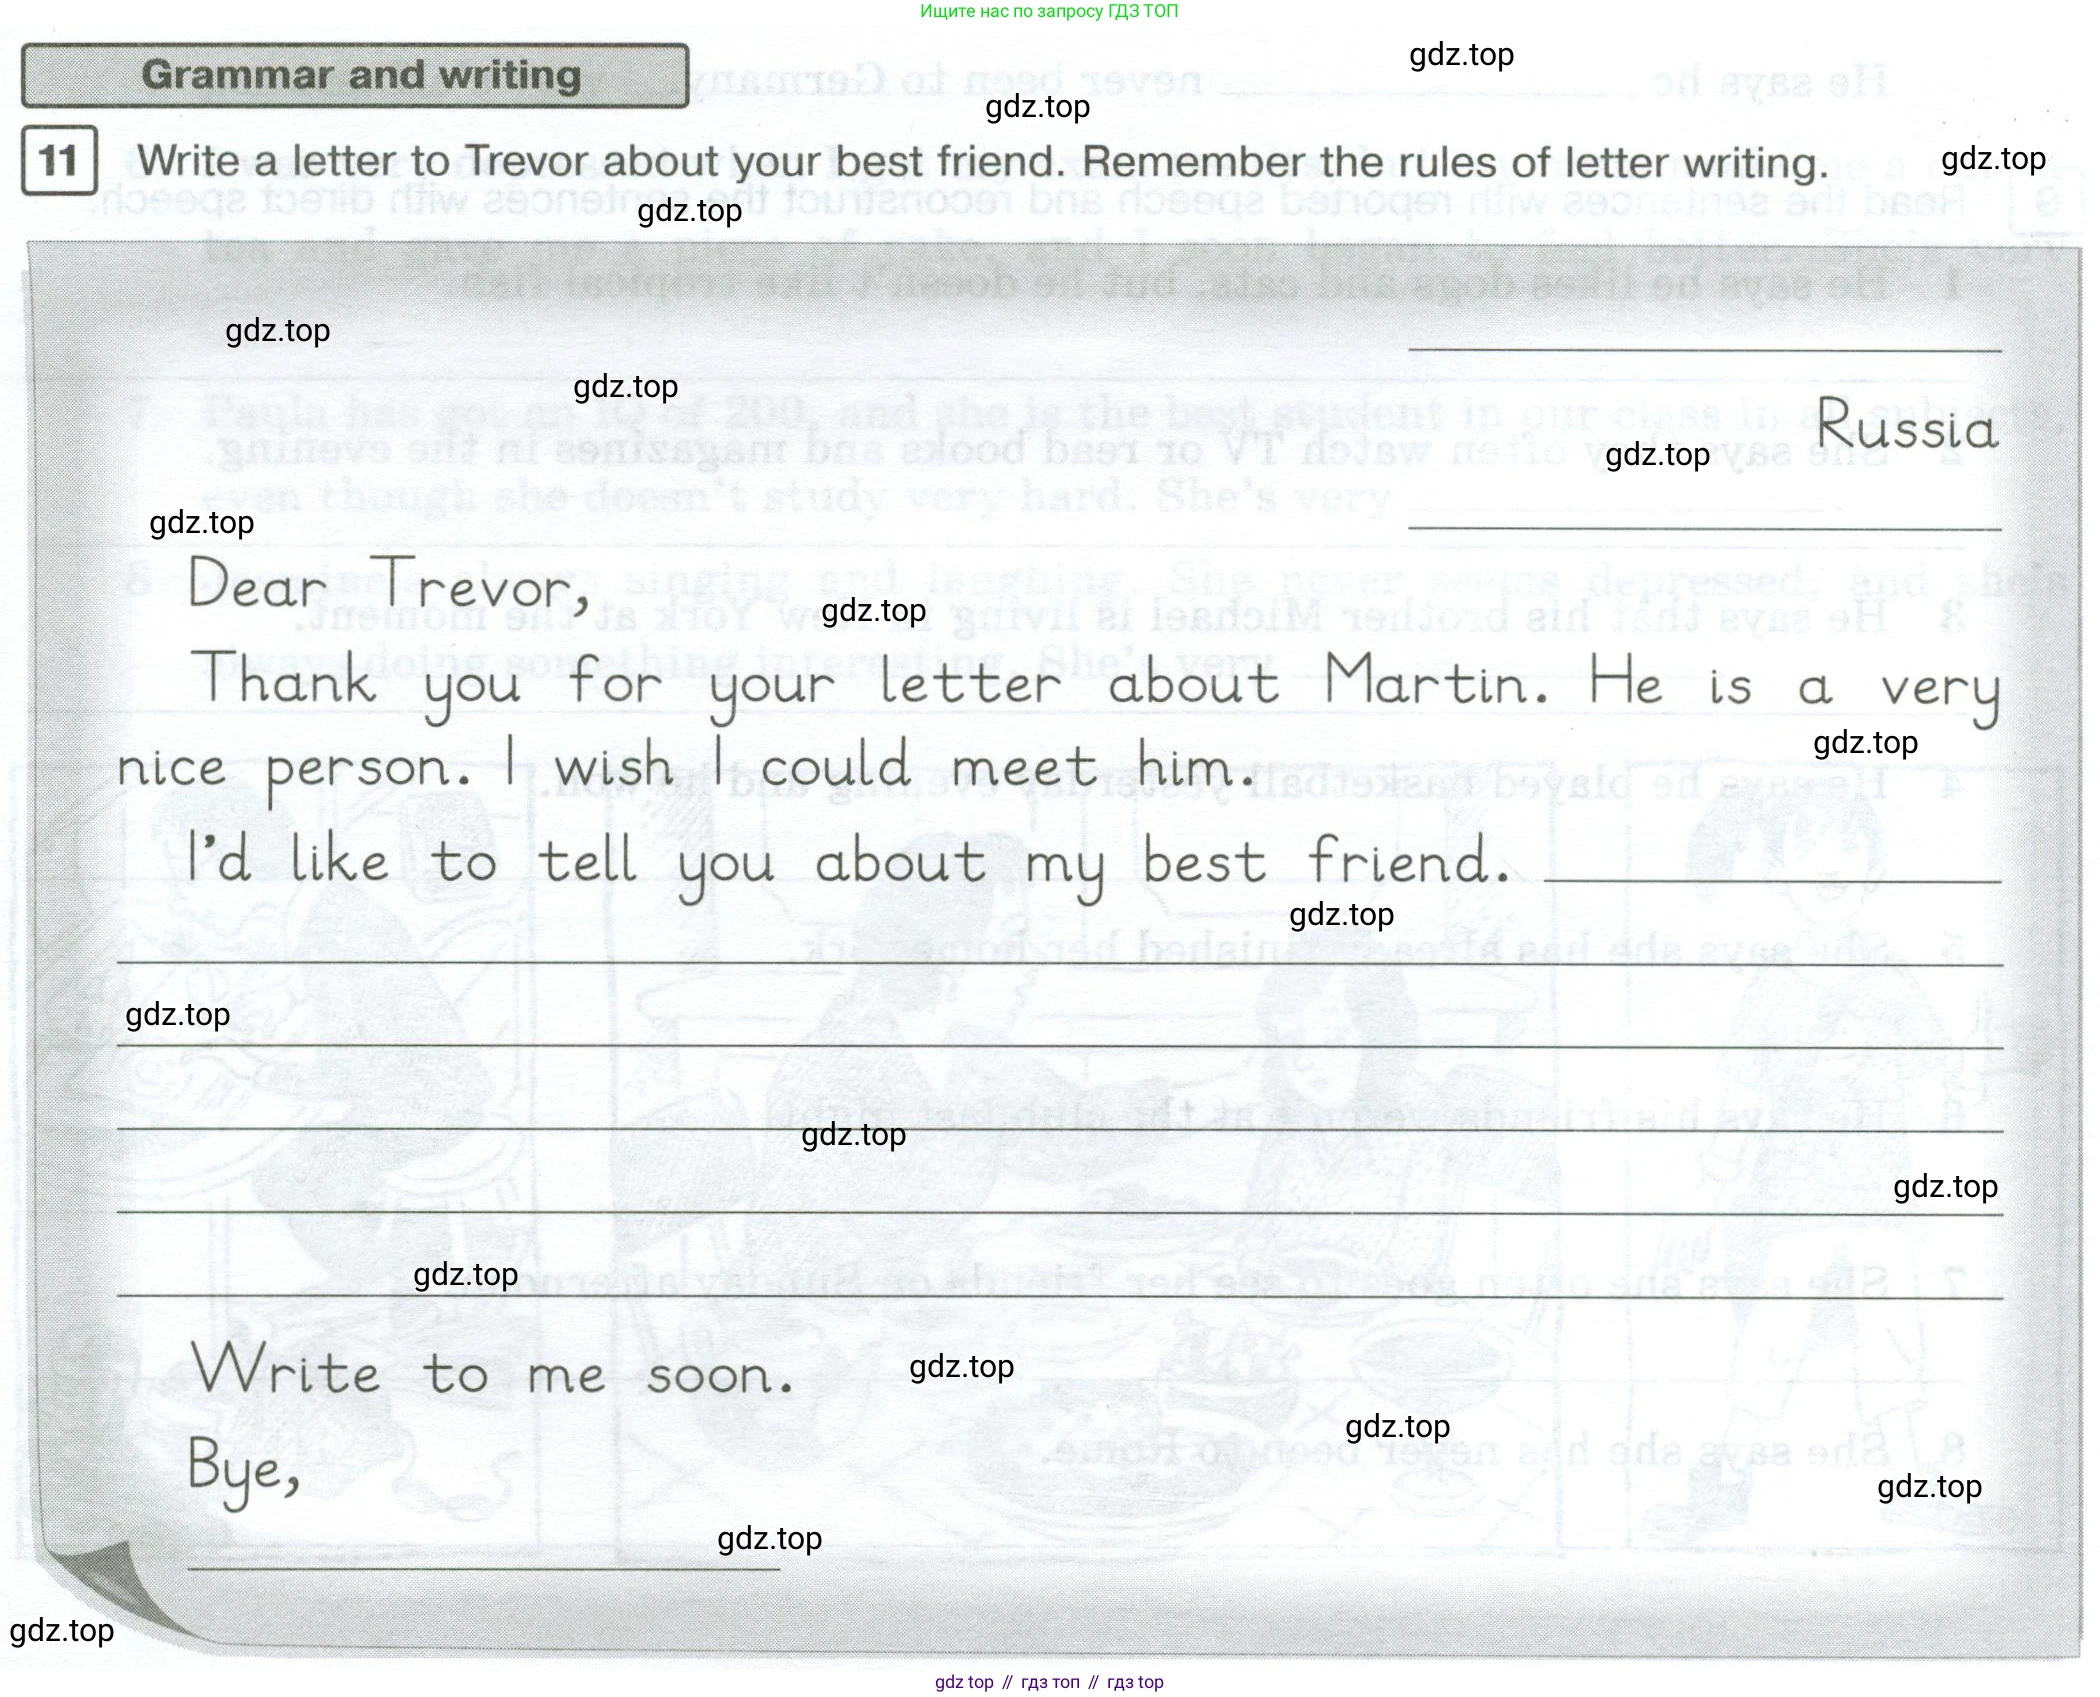 Ищите нас по запросу ГДЗ ТОП
Grammar and writing
gdz.top
gdz.top
11 Write a letter to Trevor about your best friend. Remember the rules of letter writing.
gdz.top
gdz.top
gdz.top
gdz.top
Russia
gdz.top
gdz.top
Dear Trevor,
gdz.top
Thank you for your letter about Martin. He is a very
gdz.top
nice person. I wish I could meet him.
I'd like to tell you about my best friend.
gdz.top
gdz.top
gdz.top
gdz.top
gdz.top
Write to me soon.
gdz.top
gdz.top
Bye,
gdz.top
gdz.top
gdz.top
gdz top // гдз топ // гдз top